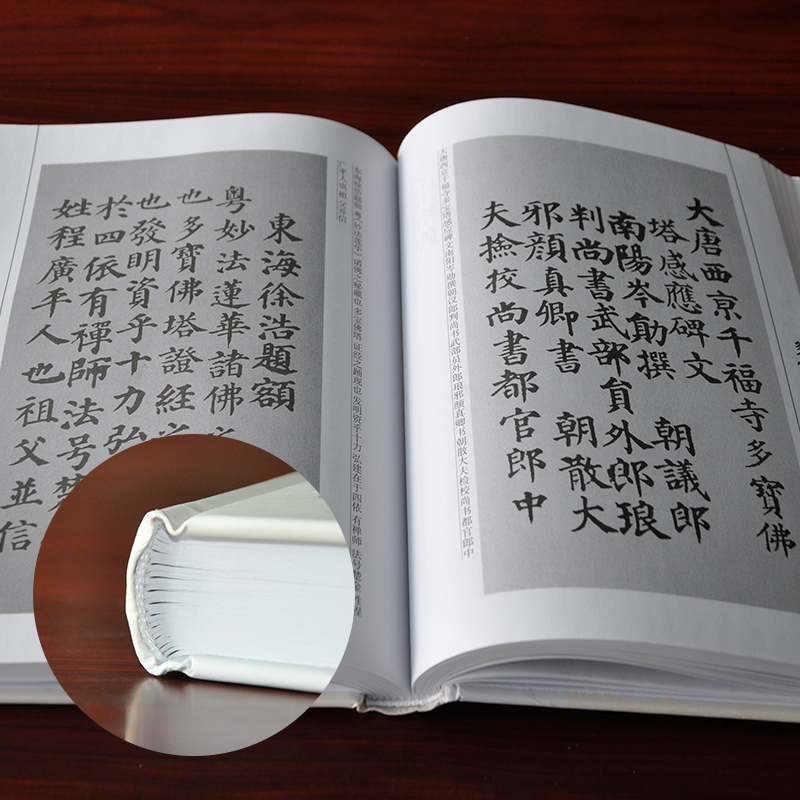 大唐西京千福寺多寶佛
塔感應碑文
南陽岑勛撰 朝議郎
判尚書武部員外郎琅
邪顏真卿書 朝散大
夫撿校尚書都官郎中
大唐西京千福寺多宝塔感应碑文南阳岑勋撰朝议郎判尚书武部员外郎琅邪颜真卿书朝散大夫检校尚书都官郎中
东海徐浩题额 粤《妙法莲华》诸佛之秘藏也 多宝佛塔 证经之踊现也 发明资乎十力 弘建在于四依 有禅师 法号楚金 姓程
广平人也 祖父并信
東海徐浩題額
粵妙法蓮華諸佛
也多寶佛塔證經
也發明資乎十力弘
於四依有禪師法号
姓程廣平人也祖父並信